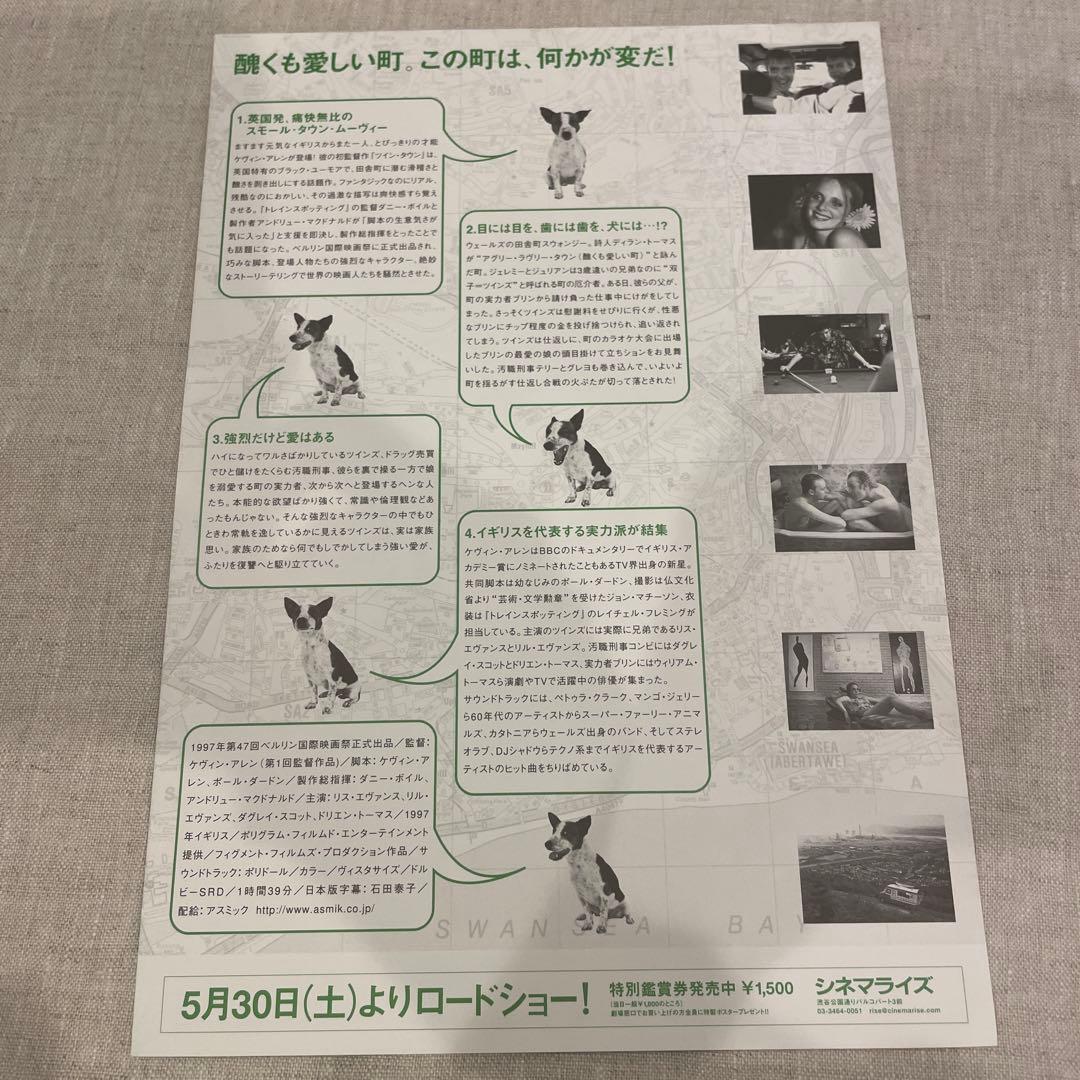 醜くも愛しい町。この町は、何かが変だ!
1.英国発、痛快無比の
スモール・タウン・ムーヴィー
ますます元気なイギリスからまた一人、とびっきりの才能
ケヴィン・アレンが登場! 彼の初監督作『ツイン・タウン』は、
英国特有のブラック・ユーモアで、田舎町に潜む滑稽さと
醜さを剥き出しにする話題作。ファンタジックなのにリアル、
残酷なのにおかしい、その過激な描写は爽快感すら覚え
させる。『トレインスポッティング』の監督ダニー・ボイルと
製作者アンドリュー・マクドナルドが「脚本の生意気さが
気に入った」と支援を即決し、製作総指揮をとったことで
も話題になった。ベルリン国際映画祭に正式出品され、
巧みな脚本、登場人物たちの強烈なキャラクター、絶妙
なストーリーテリングで世界の映画人たちを騒然とさせた。
2.目には目を、歯には歯を、犬には…!?
ウェールズの田舎町スウォンジー。詩人ディラン・トーマス
が“アグリー・ラヴリー・タウン(醜くも愛しい町)”と詠ん
だ町。ジェレミーとジュリアンは3歳違いの兄弟なのに“双
子=ツインズ”と呼ばれる町の厄介者。ある日、彼らの父が、
町の実力者ブリンから請け負った仕事中にけがをしてし
まった。さっそくツインズは慰謝料をせびりに行くが、性悪
なブリンにチップ程度の金を投げ捨てつけられ、追い返され
てしまう。ツインズは仕返しに、町のカラオケ大会に出場
したブリンの最愛の娘の頭目掛けて立ちションをお見舞
いした。汚職刑事テリーとグレヨも巻き込んで、いよいよ
町を揺るがす仕返し合戦の火ぶたが切って落とされた!
3.強烈だけど愛はある
ハイになってワルさばかりしているツインズ、ドラッグ売買
でひと儲けをたくらむ汚職刑事、彼らを裏で操る一方で娘
を溺愛する町の実力者、次から次へと登場するヘンな人
たち。本能的な欲望ばかり強くて、常識や倫理観などあ
ったもんじゃない。そんな強烈なキャラクターの中でもひ
ときわ常軌を逸しているかに見えるツインズは、実は家族
思い。家族のためなら何でもしでかしてしまう強い愛が、
ふたりを復讐へと駆り立てていく。
4.イギリスを代表する実力派が結集
ケヴィン・アレンはBBCのドキュメンタリーでイギリス・ア
カデミー賞にノミネートされたこともあるTV界出身の新星。
共同脚本は幼なじみのポール・ダードン、撮影は仏文化
省より“芸術・文学勲章”を受けたジョン・マチーソン、衣
装は『トレインスポッティング』のレイチェル・フレミングが
担当している。主演のツインズには実際に兄弟であるリス・
エヴァンスとリル・エヴァンズ。汚職刑事コンビにはダグレ
イ・スコットとドリエン・トーマス、実力者ブリンにはウィリアム・
トーマスら演劇やTVで活躍中の俳優が集まった。
サウンドトラックには、ペトゥラ・クラーク、マンゴ・ジェリー
ら60年代のアーティストからスーパー・ファーリー・アニマ
ルズ、カタトニアらウェールズ出身のバンド、そしてステレ
オラブ、DJシャドウらテクノ系までイギリスを代表するアー
ティストのヒット曲をちりばめている。
1997年第47回ベルリン国際映画祭正式出品/監督:
ケヴィン・アレン(第1回監督作品)/脚本:ケヴィン・ア
レン、ポール・ダードン/製作総指揮:ダニー・ボイル、
アンドリュー・マクドナルド/主演:リス・エヴァンス、リル・
エヴァンズ、ダグレイ・スコット、ドリエン・トーマス/1997
年イギリス/ポリグラム・フィルムド・エンターテインメント
提供/フィグメント・フィルムズ・プロダクション作品/サ
ウンドトラック:ポリドール/カラー/ヴィスタサイズ/ドル
ビーSRD/1時間39分/日本版字幕:石田泰子/
配給:アスミック http://www.asmik.co.jp/
SA5
SA1
SA2
SWANSEA
(ABERTAWE)
SWANSEA BAY
5月30日(土)よりロードショー!
特別鑑賞券発売中 ¥1,500
(当日一般¥1,800のところ)
劇場窓口でお買い上げの方全員に特製ポスタープレゼント!!
シネマライズ
渋谷公園通りパルコパート3前
03-3464-0051 rise@cinemarise.com